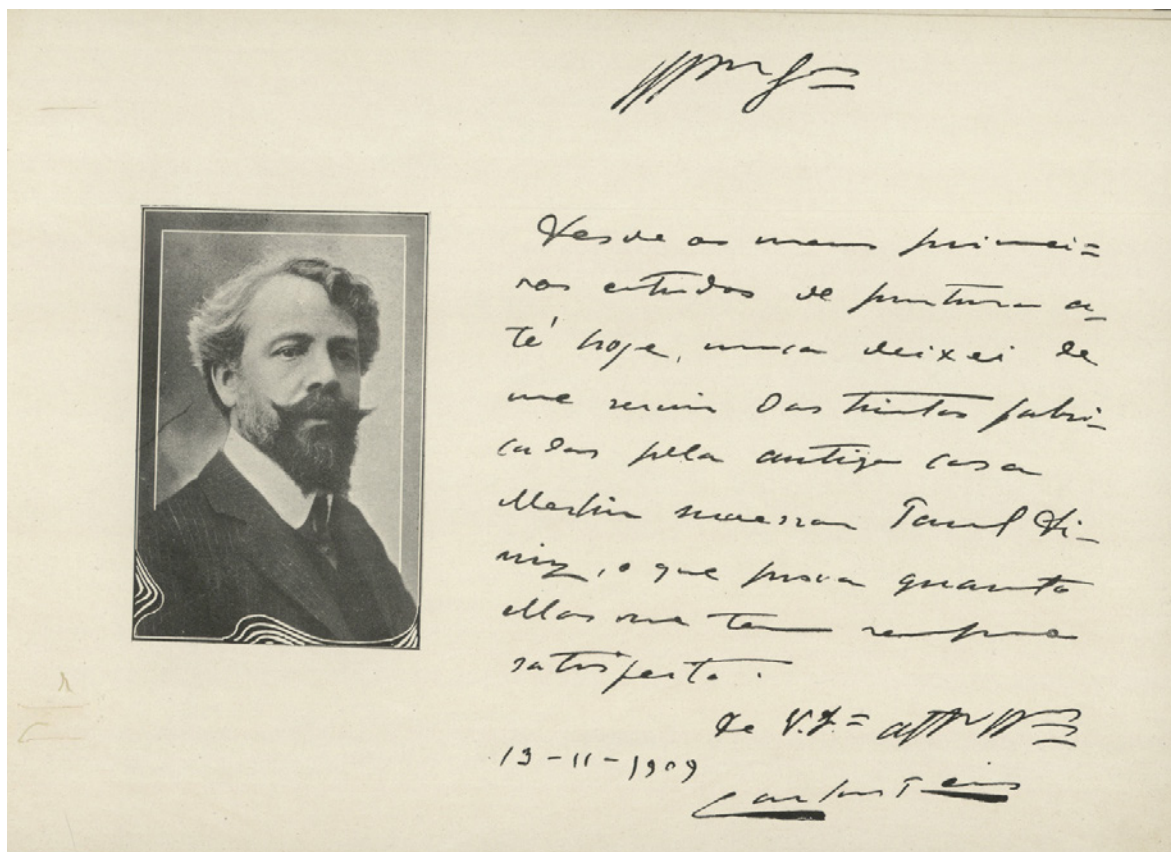 Desde os meus primei=
ros estudos de pintura a-
té hoje, nunca deixei de
me servir das tintas fabri-
cadas pela antiga casa
Merlin sucessor Paul Di-
niz, o que prova quanto
ellas me tem sempre
satisfeito.
de V. S.=
13-11-1909
Carlos Reis